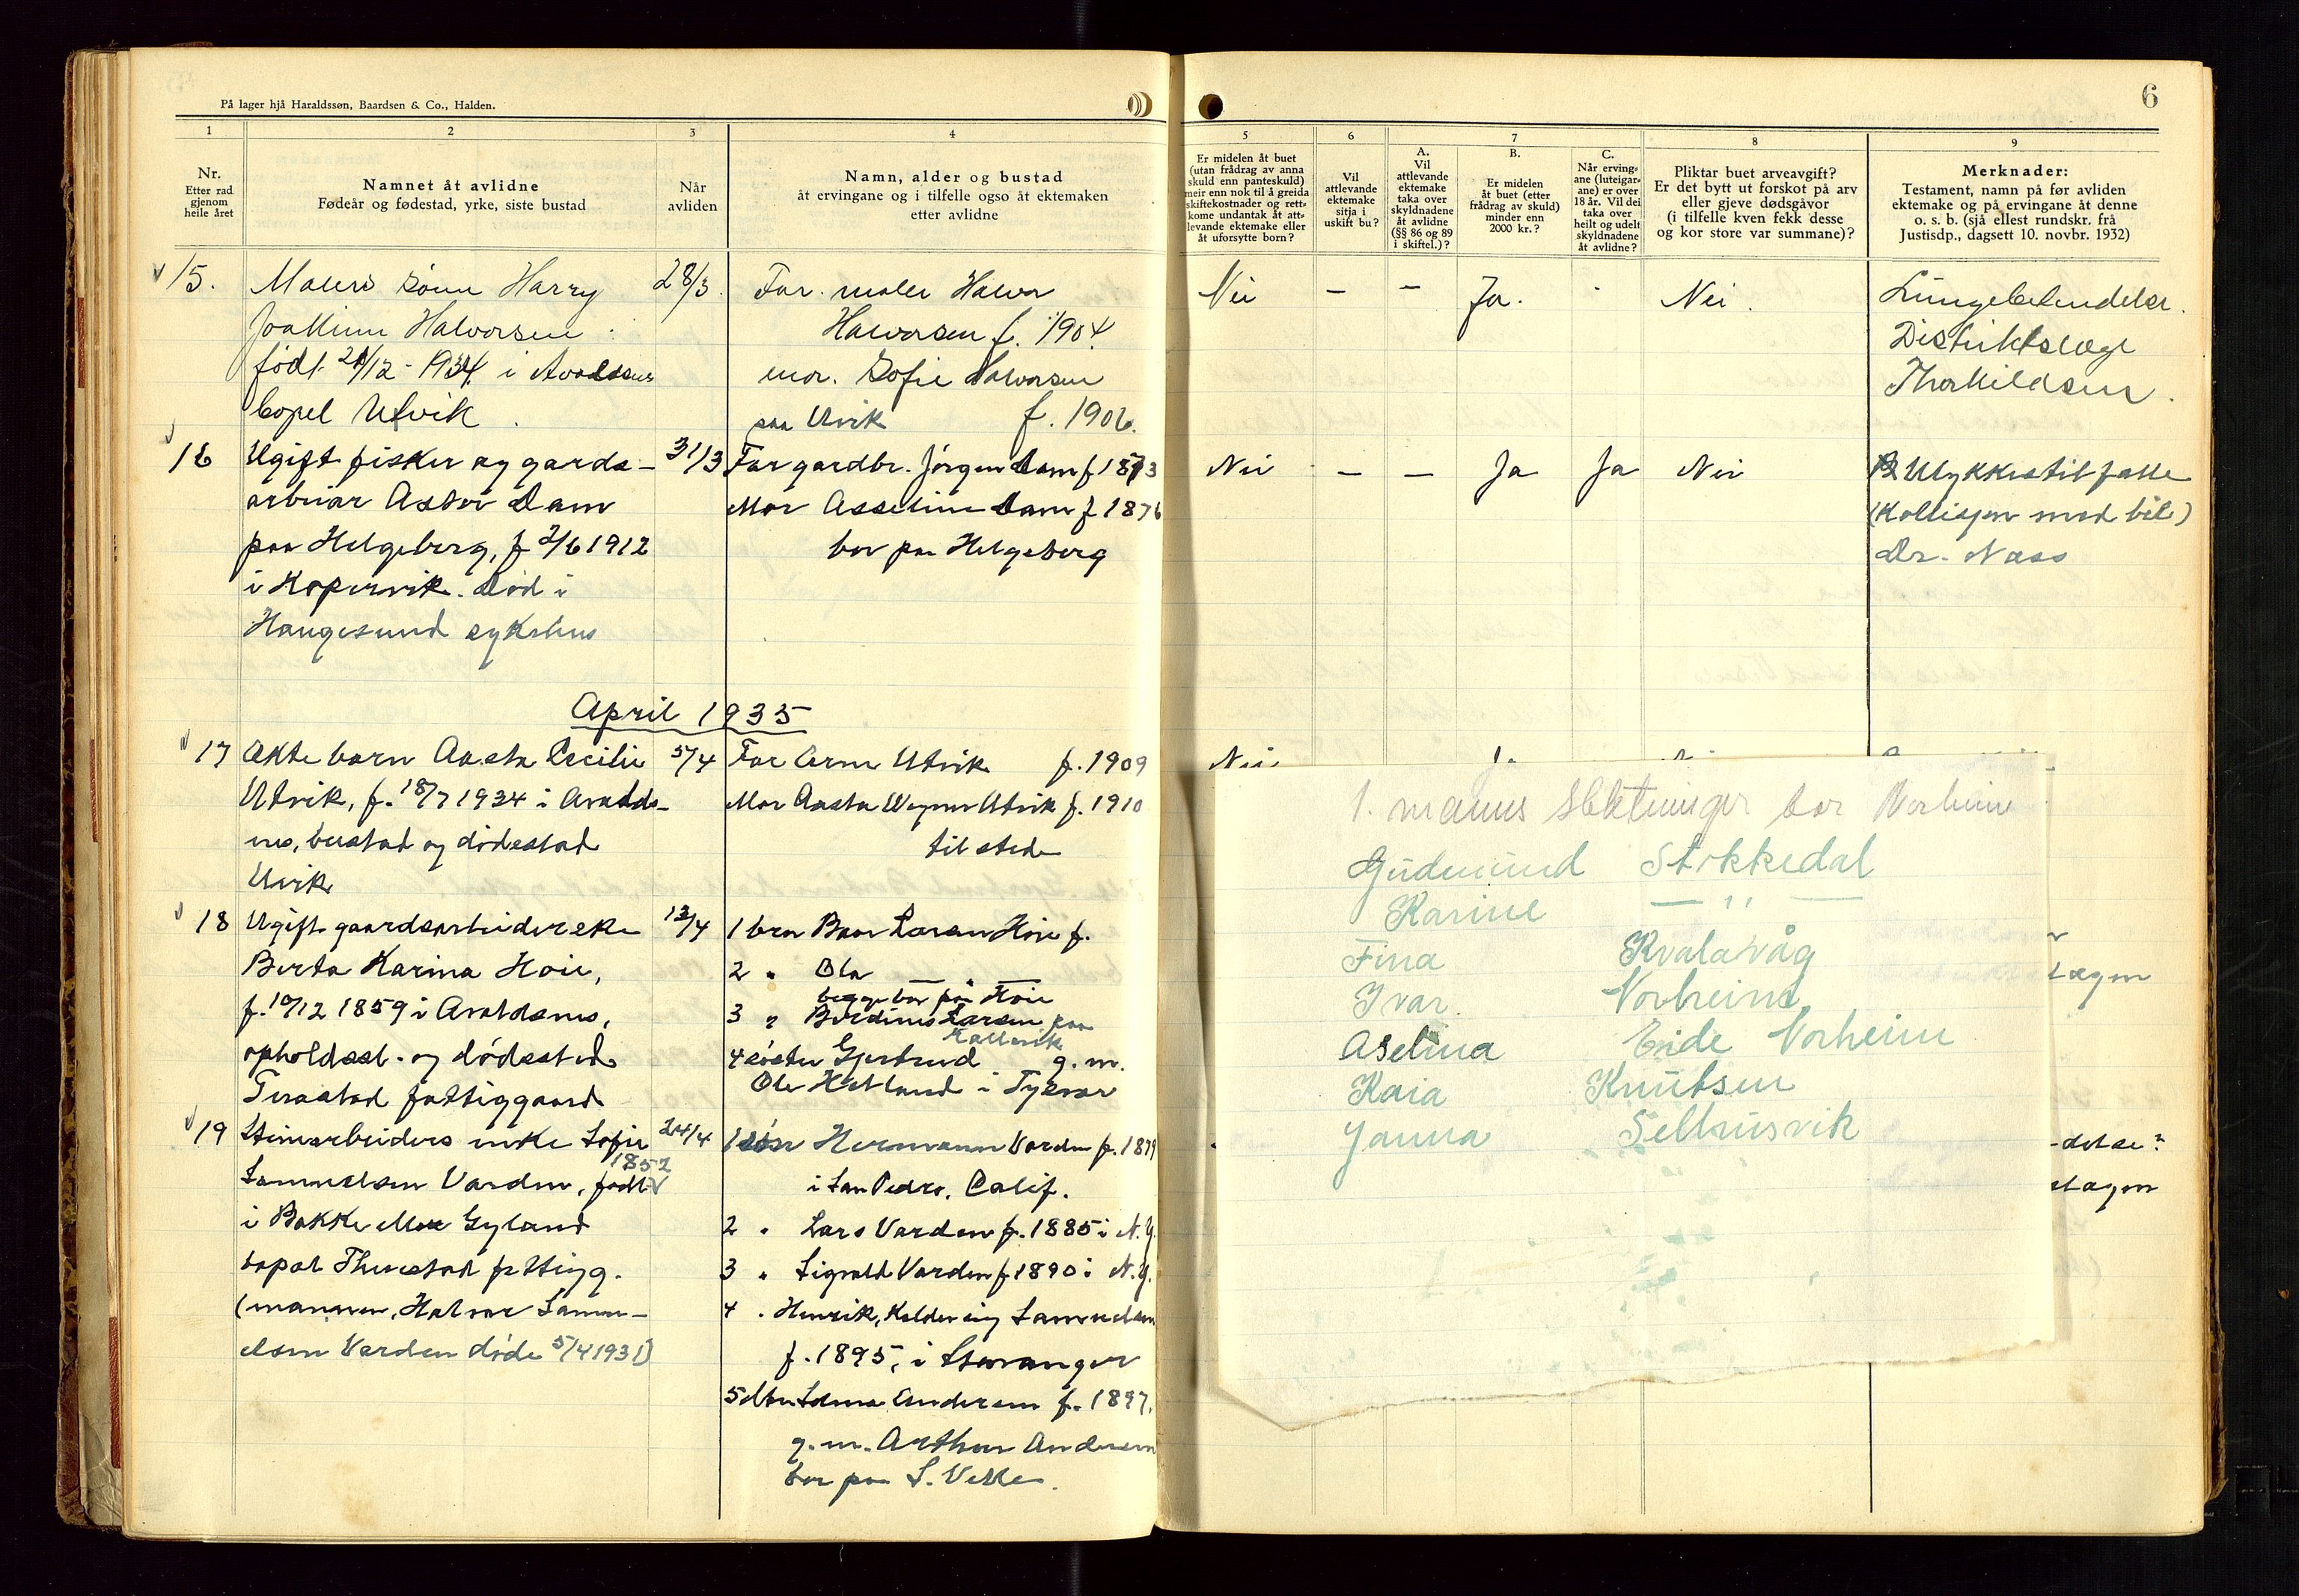 På lager hjå Haraldssøn, Baardsen & Co., Halden.
6
1
2
3
4
5
6
7
8
9
Nr.
Etter rad
gjenom
heile året
Namnet åt avlidne
Fødeår og fødestad, yrke, siste bustad
Når
avliden
Namn, alder og bustad
åt ervingane og i tilfelle ogso åt ektemaken
etter avlidne
Er midelen åt buet
(utan frådrag av anna
skuld enn panteskuld)
meir enn nok til å greida
skiftekostnader og rett-
kome undantak åt att-
levande ektemake eller
åt uforsytte born?
Vil
attlevande
ektemake
sitja i
uskift bu?
A.
Vil
attlevande
ektemake
taka over
skyldnadene
åt avlidne
(§§ 86 og 89
i skiftel.)?
B.
Er midelen
åt buet (etter
frådrag av skuld)
minder enn
2000 kr.?
C.
Når erving-
ane (luteigar-
ane) er over
18 år. Vil dei
taka over
heilt og udelt
skyldnadene
åt avlidne?
Pliktar buet arveavgift?
Er det bytt ut forskot på arv
eller gjeve dødsgåvor
(i tilfelle kven fekk desse
og kor store var summane)?
Merknader:
Testament, namn på før avliden
ektemake og på ervingane åt denne
o. s. b. (sjå ellest rundskr. frå
Justisdp., dagsett 10. novbr. 1932)
15.
Malers sønn Harry
Joakim Halvorsen
født 21/12 - 1934 i Avaldsnes
bopel Utvik
28/3.
Far. maler Halvor
Halvorsen f. 1904.
mor. Sofie Halvorsen
paa Utvik f. 1906.
Nei – – Ja. - Nei.
Lungebetendelse.
Distriktslæge
Thorkildsen.
16
Ugift fisker og gards-
arbeiar Astor Dam
paa Helgeberg, f 2/6 1912
i Kopervik. Død i
Haugesund sykehus
31/3
Far gardbr. Jørgen Dam f 1873
Mor Asseline Dam f 1876
bor paa Helgeberg
Nei – – Ja Ja Nei
Ulykkestilfelle
(Kollisjon med bil)
Dr. Næss
April 1935
17
Ekte barn Aasta Cecilie
Utvik, f. 18/7 1934 i Avalds-
nes, bustad og dødsstad
Utvik
5/4
Far Arne Utvik f. 1909
Mor Aasta Utvik f. 1910
til stede
Nei
18
Ugift gaardsarbeiderske
Berta Karina Hoie,
f. 10/12 1859 i Avaldsnes,
opholdsst. og dødssted
Tuastad fattiggaard
13/4
1 bror Baar Larsen Hoie f.
2 " Ola — —
begge bor på Hoie
3 " Berdines Larsen paa
Kallevik
4 søster Gjertrud g. m.
Ole Hetland i Tysvær
19
Steinarbeiders enke Sofie
1852
Samuelsen Varden, født
i Bakke Gyland
bopæl Tuastad fattigg.
(mannen, Halvor Samu-
elsen Varden døde 5/4 1931)
24/4
1 sønn Hermann Varden f. 1879
i San Pedro, Calif.
2 " Lars Varden f. 1885 i N.Y.
3 " Sigvald Varden f 1890 i N.Y.
4 " Henrik, Samuelsen
f. 1895, i Stavanger
5 dtr. Selma Andersen f. 1897,
g.m. Arthur Andersen
bor paa S. Veke.
1. manns slektninger bor Norheim
Gudmund Stokkedal
Karine — " —
Fina Kvalavåg
Ivar Norheim
Aselina Eide Norheim
Kaia Knutsen
Janna Selhusvik